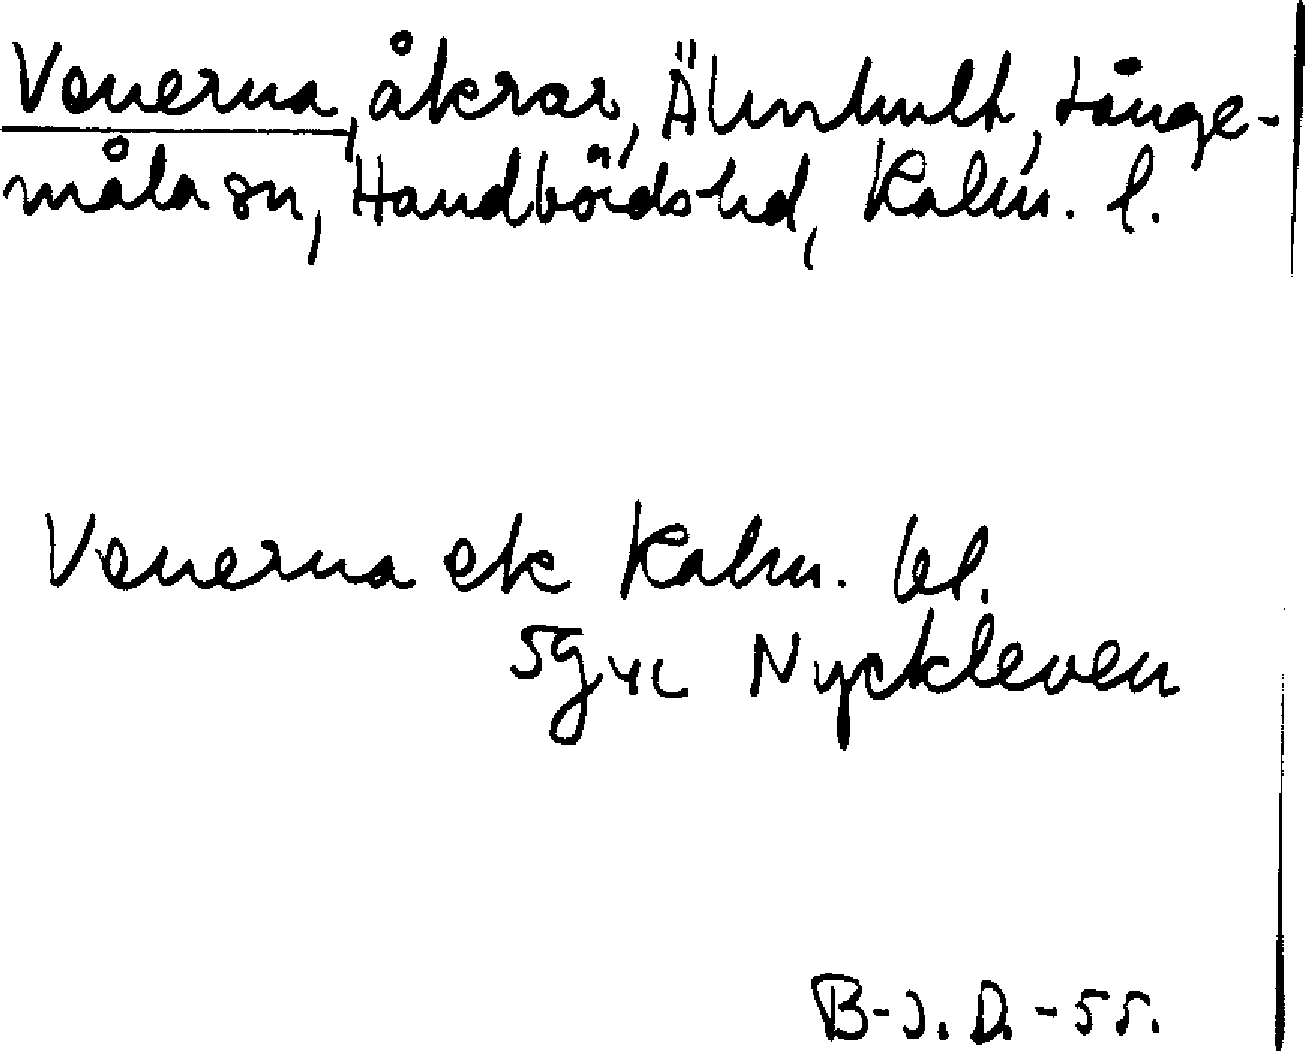 Venerna, åkrar, Älmhult, Långe-
måla sn, Handbörds hd, Kalm. l.
Venerna ek Kalm. bl.
5g4c Nyckleven
B-J. D. -55.